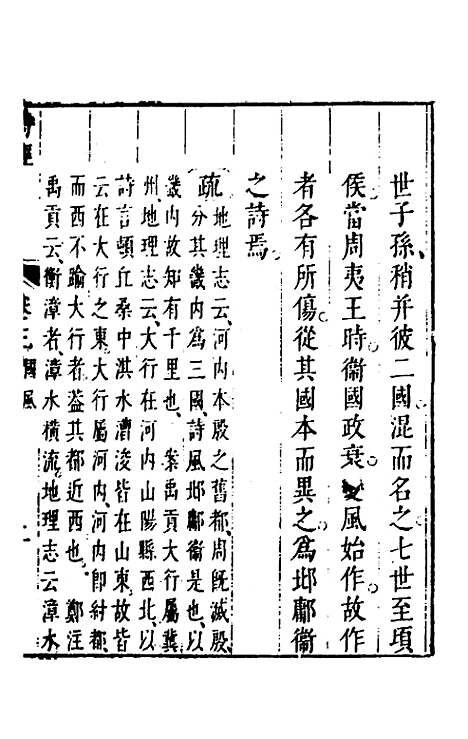 世子孫稍并彼二國混而名之七世至頃
侯當周夷王時衞國政衰變風始作故作
者各有所傷從其國本而異之爲邶鄘衞
之詩焉
疏地理志云河内本殷之舊都周旣滅殷
分其畿内爲三國詩風邶鄘衞是也以
畿内故知有千里也案禹貢大行屬冀
州地理志云大行在河内山陽縣西北以
詩言頓丘桑中淇水漕浚皆在山東故皆
云在大行之東大行屬河内河内卽紂都
而西不踰大行者葢其都近西也鄭注
禹貢云衡漳者漳水橫流地理志云漳水
詩經 卷三 國風